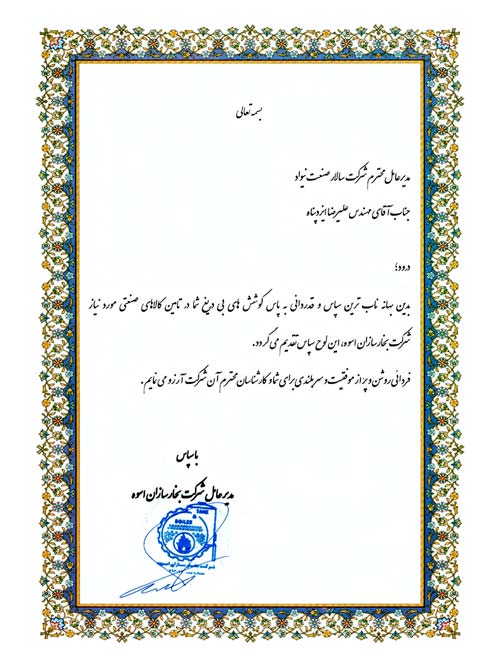 بسمه تعالی
مدیرعامل محترم شرکت سالار صنعت نیواد
جناب آقای مهندس علیرضا ایزدپناه
درود؛
بدین بهانه ناب ترین سپاس و قدردانی به پاس کوشش های بی دریغ شما در تامین کالاهای صنعتی مورد نیاز
شرکت بخارسازان اسوه، این لوح سپاس تقدیم می گردد.
فردائی روشن و پر از موفقیت و سربلندی برای شما و کارشناسان محترم آن شرکت آرزو می نمایم.
با سپاس
مدیرعامل شرکت بخارسازان اسوه
TANK
&
BOILER